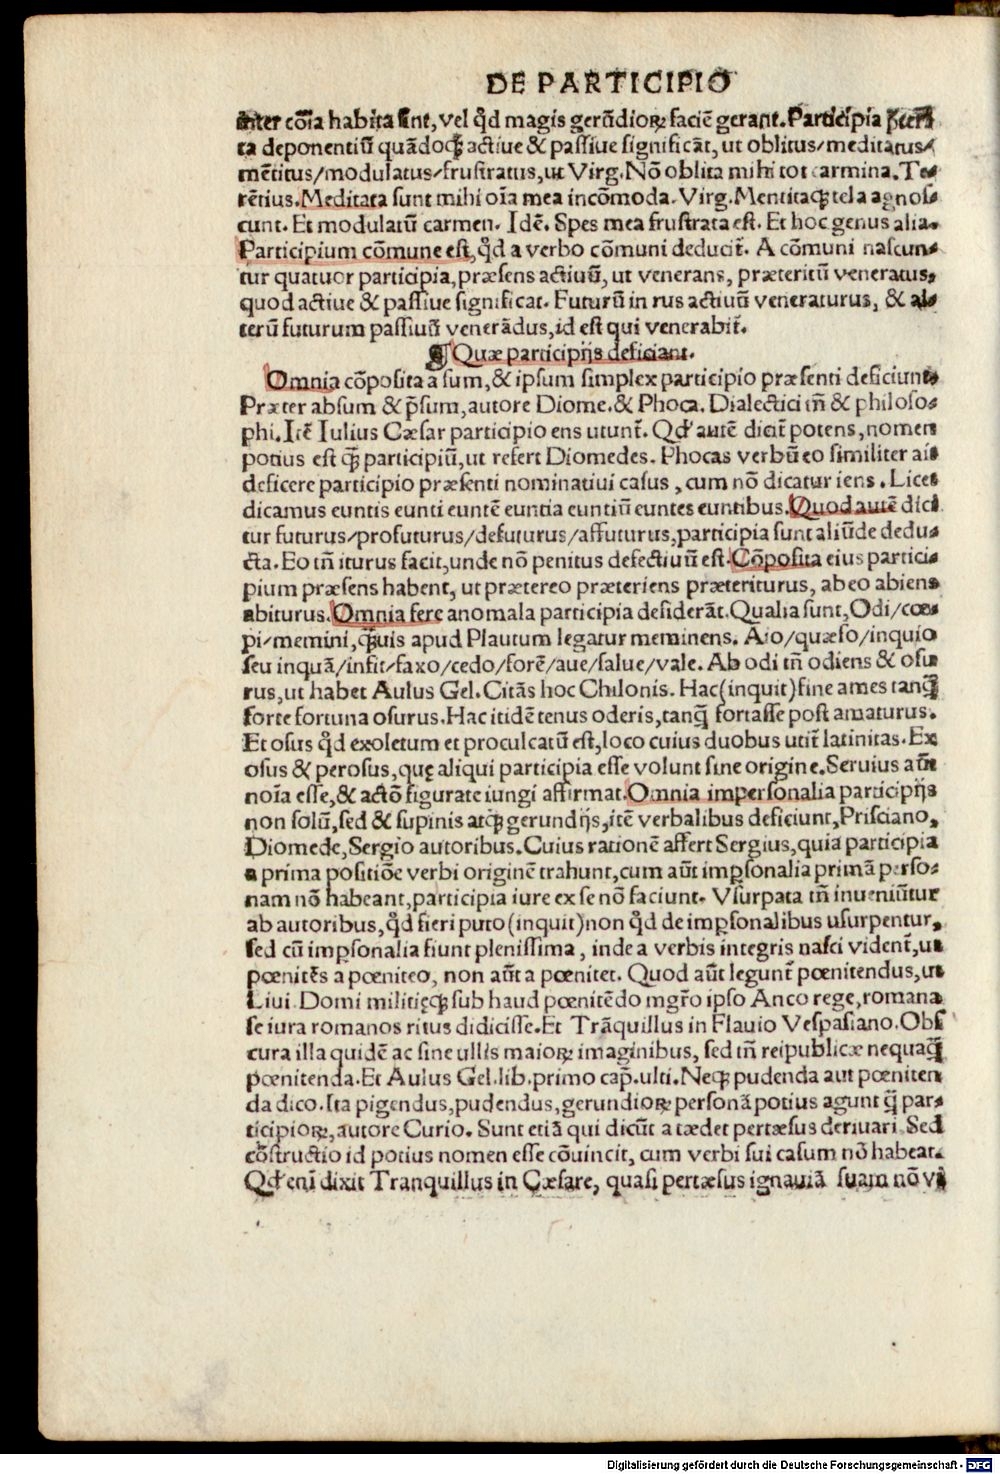 DE PARTICIPIO
inter cõia habita sint, vel qđ magis gerũdioꝝ faciẽ gerant. Participia p̃teri
ta deponentiũ quãdoqꝫ actiue & passiue significãt, ut oblitus/meditatus/
mẽtitus/modulatus/frustratus, ut Virg. Nõ oblita mihi tot carmina. Te⸗
rẽtius. Meditata sunt mihi oĩa mea incõmoda. Virg. Mentitaqꝫ tela agnos⸗
cunt. Et modulatũ carmen. Idẽ. Spes mea frustrata est. Et hoc genus alia.
Participium cõmune est, qđ a verbo cõmuni deducit̃. A cõmuni nascun⸗
tur quatuor participia, præsens actiuũ, ut venerans, præteritũ veneratus,
quod actiue & passiue significat. Futurũ in rus actiuũ veneraturus, & al⸗
terũ futurum passiuũ venerãdus, id est qui venerabit̃.
¶ Quæ participijs deficiant.
Omnia cõposita a sum, & ipsum simplex participio præsenti deficiunt
Præter absum & p̃sum, autore Diome. & Phoca. Dialectici tñ & philoso⸗
phi. Itẽ Iulius Cæsar participio ens utunt̃. Qđ autẽ dicit̃ potens, nomen
potius est qꝫ̃ participiũ, ut refert Diomedes. Phocas verbũ eo similiter ait
deficere participio præsenti nominatiui casus, cum nõ dicatur iens. Licet
dicamus euntis eunti euntẽ euntia euntiũ euntes euntibus. Quod autẽ dici
tur futurus/profuturus/defuturus/affuturus, participia sunt aliũde dedu⸗
cta. Eo tñ iturus facit, unde nõ penitus defectiuũ est. Cõposita eius partici⸗
pium præsens habent, ut prætereo præteriens præteriturus, abeo abiens
abiturus. Omnia fere anomala participia desiderãt. Qualia sunt, Odi/cœ⸗
pi/memini, qꝫ̃uis apud Plautum legatur meminens. Aio/quæso/inquio
seu inquã/infit/faxo/cedo/forẽ/aue/salue/vale. Ab odi tñ odiens & osu
rus, ut habet Aulus Gel. Citãs hoc Chilonis. Hac (inquit) fine ames tanqꝫ̃
forte fortuna osurus. Hac itidẽ tenus oderis, tanq̃ fortasse post amaturus.
Et osus qđ exoletum et proculcatũ est, loco cuius duobus utit̃ latinitas. Ex
osus & perosus, quę aliqui participia esse volunt sine origine. Seruius aũt
noĩa esse, & actõ figurate iungi affirmat. Omnia impersonalia participijs
non solũ, sed & supinis atqꝫ gerundijs, itẽ verbalibus deficiunt, Prisciano,
Diomede, Sergio autoribus. Cuius rationẽ affert Sergius, quia participia
a prima positiõe verbi originẽ trahunt, cum aũt imp̱sonalia primã perso⸗
nam nõ habeant, participia iure ex se nõ faciunt. Vsurpata tñ inueniũtur
ab autoribus, qđ fieri puto (inquit) non qđ de imp̱sonalibus usurpentur,
sed cũ imp̱sonalia fiunt plenissima, inde a verbis integris nasci vident̃, ut
pœnitẽs a pœniteo, non aũt a pœnitet. Quod aũt legunt̃ pœnitendus, ut
Liui. Domi militięqꝫ sub haud pœnitẽdo mgr̃o ipso Anco rege, romana
se iura romanos ritus didicisse. Et Trãquillus in Flauio Vespasiano. Obs
cura illa quidẽ ac sine ullis maioꝝ imaginibus, sed tñ reipublicæ nequaqꝫ̃
pœnitenda. Et Aulus Gel. lib. primo cap̃. ulti. Neqꝫ pudenda aut pœniten
da dico. Ita pigendus, pudendus, gerundioꝝ personã potius agunt q̃ par⸗
ticipioꝝ, autore Curio. Sunt etiã qui dicũt a tædet pertæsus deriuari. Sed
cõstructio id potius nomen esse cõuincit, cum verbi sui casum nõ habeat.
Qđ enĩ dixit Tranquillus in Cæsare, quasi pertæsus ignauiã suam nõ vi
Digitalisierung gefördert durch die Deutsche Forschungsgemeinschaft - DFG